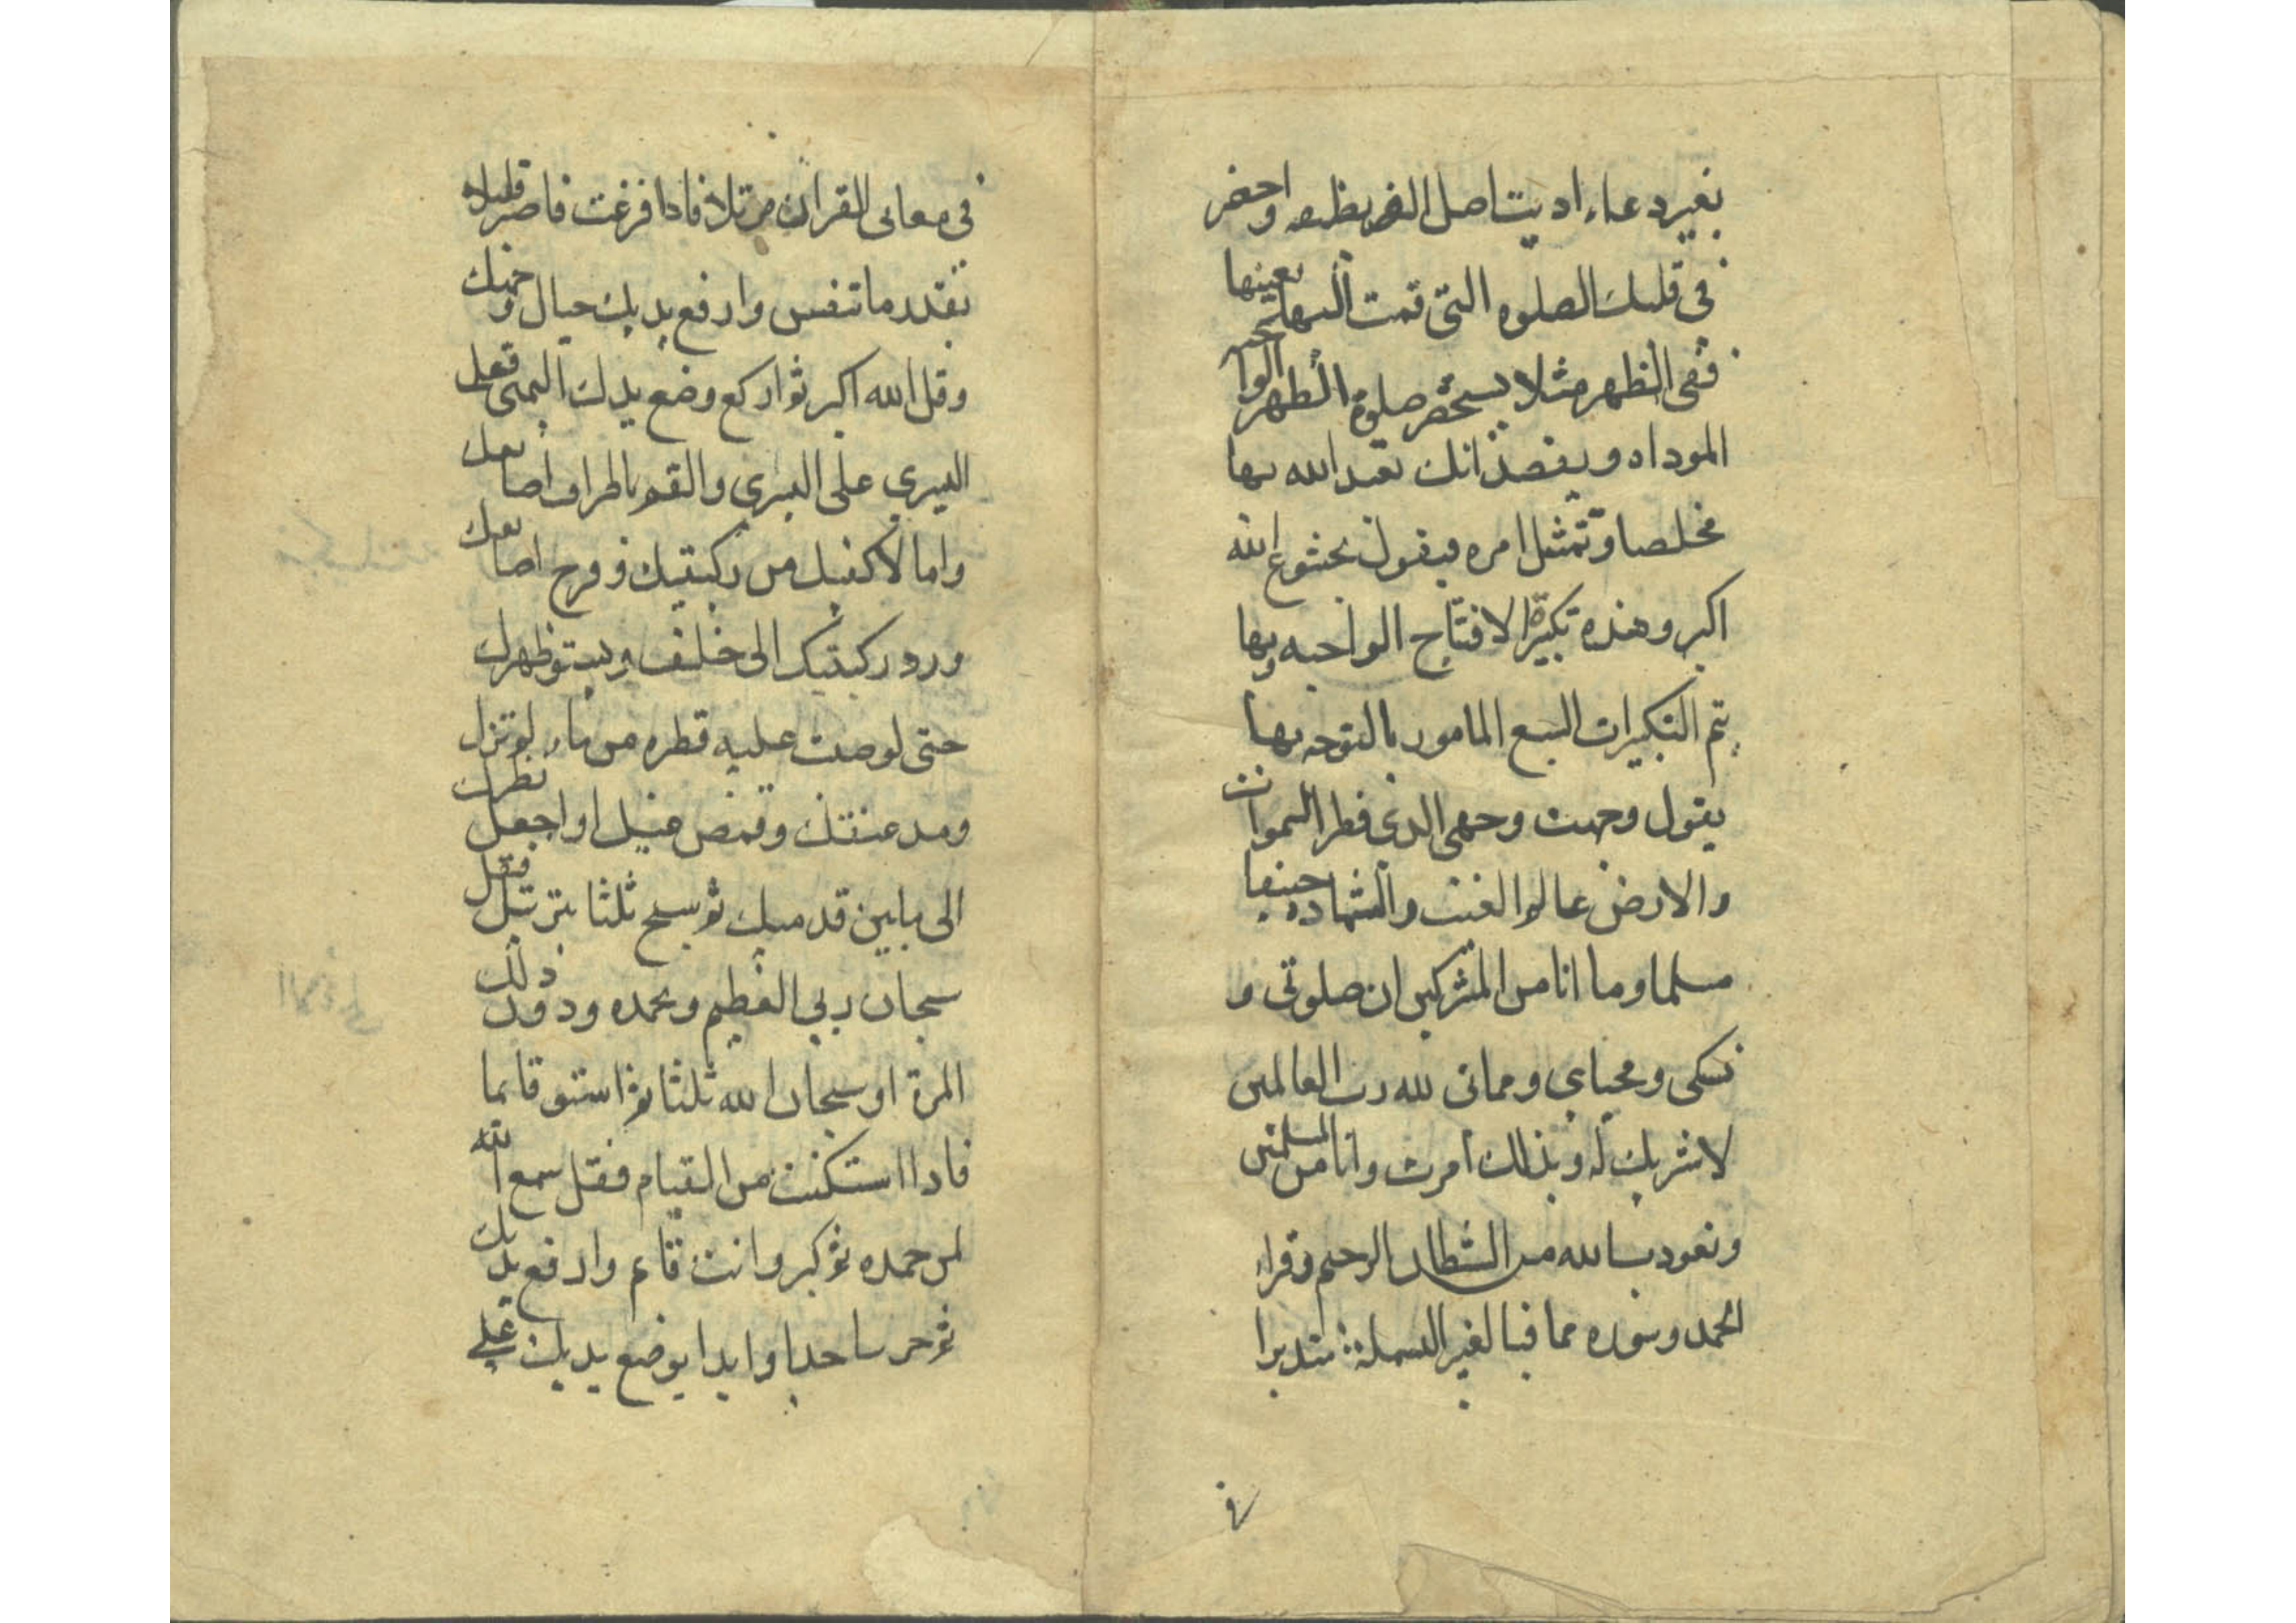 بغير دعاء اديت اصل الفريظه واحضر
في قلبك الصلوه التي قمت اليها بعينها
ففي الظهر مثلا يستحضر صلوة الظهر الواجبه
الموداه ويقصد انك تعبد الله بها
مخلصا وتمتثل امره فيقول بخشوع الله
اكبر وهذه تكبيرة الافتتاح الواجبه وبها
يتم التكبيرات السبع المامور بالتوجه بها
يقول وجهت وجهي الذي فطر السموات
والارض عالم الغيب والشهاده حنيفا
مسلما وما انا من المشركين ان صلوتي و
نسكي ومحياي ومماتي لله رب العالمين
لا شريك له وبذلك امرت وانا من المسلمين
وتعوذ بالله من الشطان الرجيم وقرا
الحمد وسوره مما فيا لغير البسملة متدبرا
في معاني القران مرتلا فاذا فرغت فاصبر قليلا
بقدر ما تنفس وارفع يديك حيال وجهك
وقل الله اكبر ثم اركع وضع يدك اليمنى قبل
اليسرى على اليسرى والقم باطراف اصابعك
واملا كفيك من ركبتيك وفرج اصابعك
ورد ركبتيك الى خلف وليستو ظهرك
حتى لو صبت عليه قطره من ماء لم تزل
ومد عنقك وغمض عينيك او اجعل نظرك
الى ما بين قدميك ثم سبح ثلثا بترتيل فقل
سبحان ربي العظيم وبحمده ودون ذلك
المرة او سبحان الله ثلثا ثم استو قايما
فاذا استمكنت من القيام فقل سمع الله
لمن حمده ثم كبر وانت قائم وارفع يديك
ثم خر ساجدا وابدا بوضع يديك على